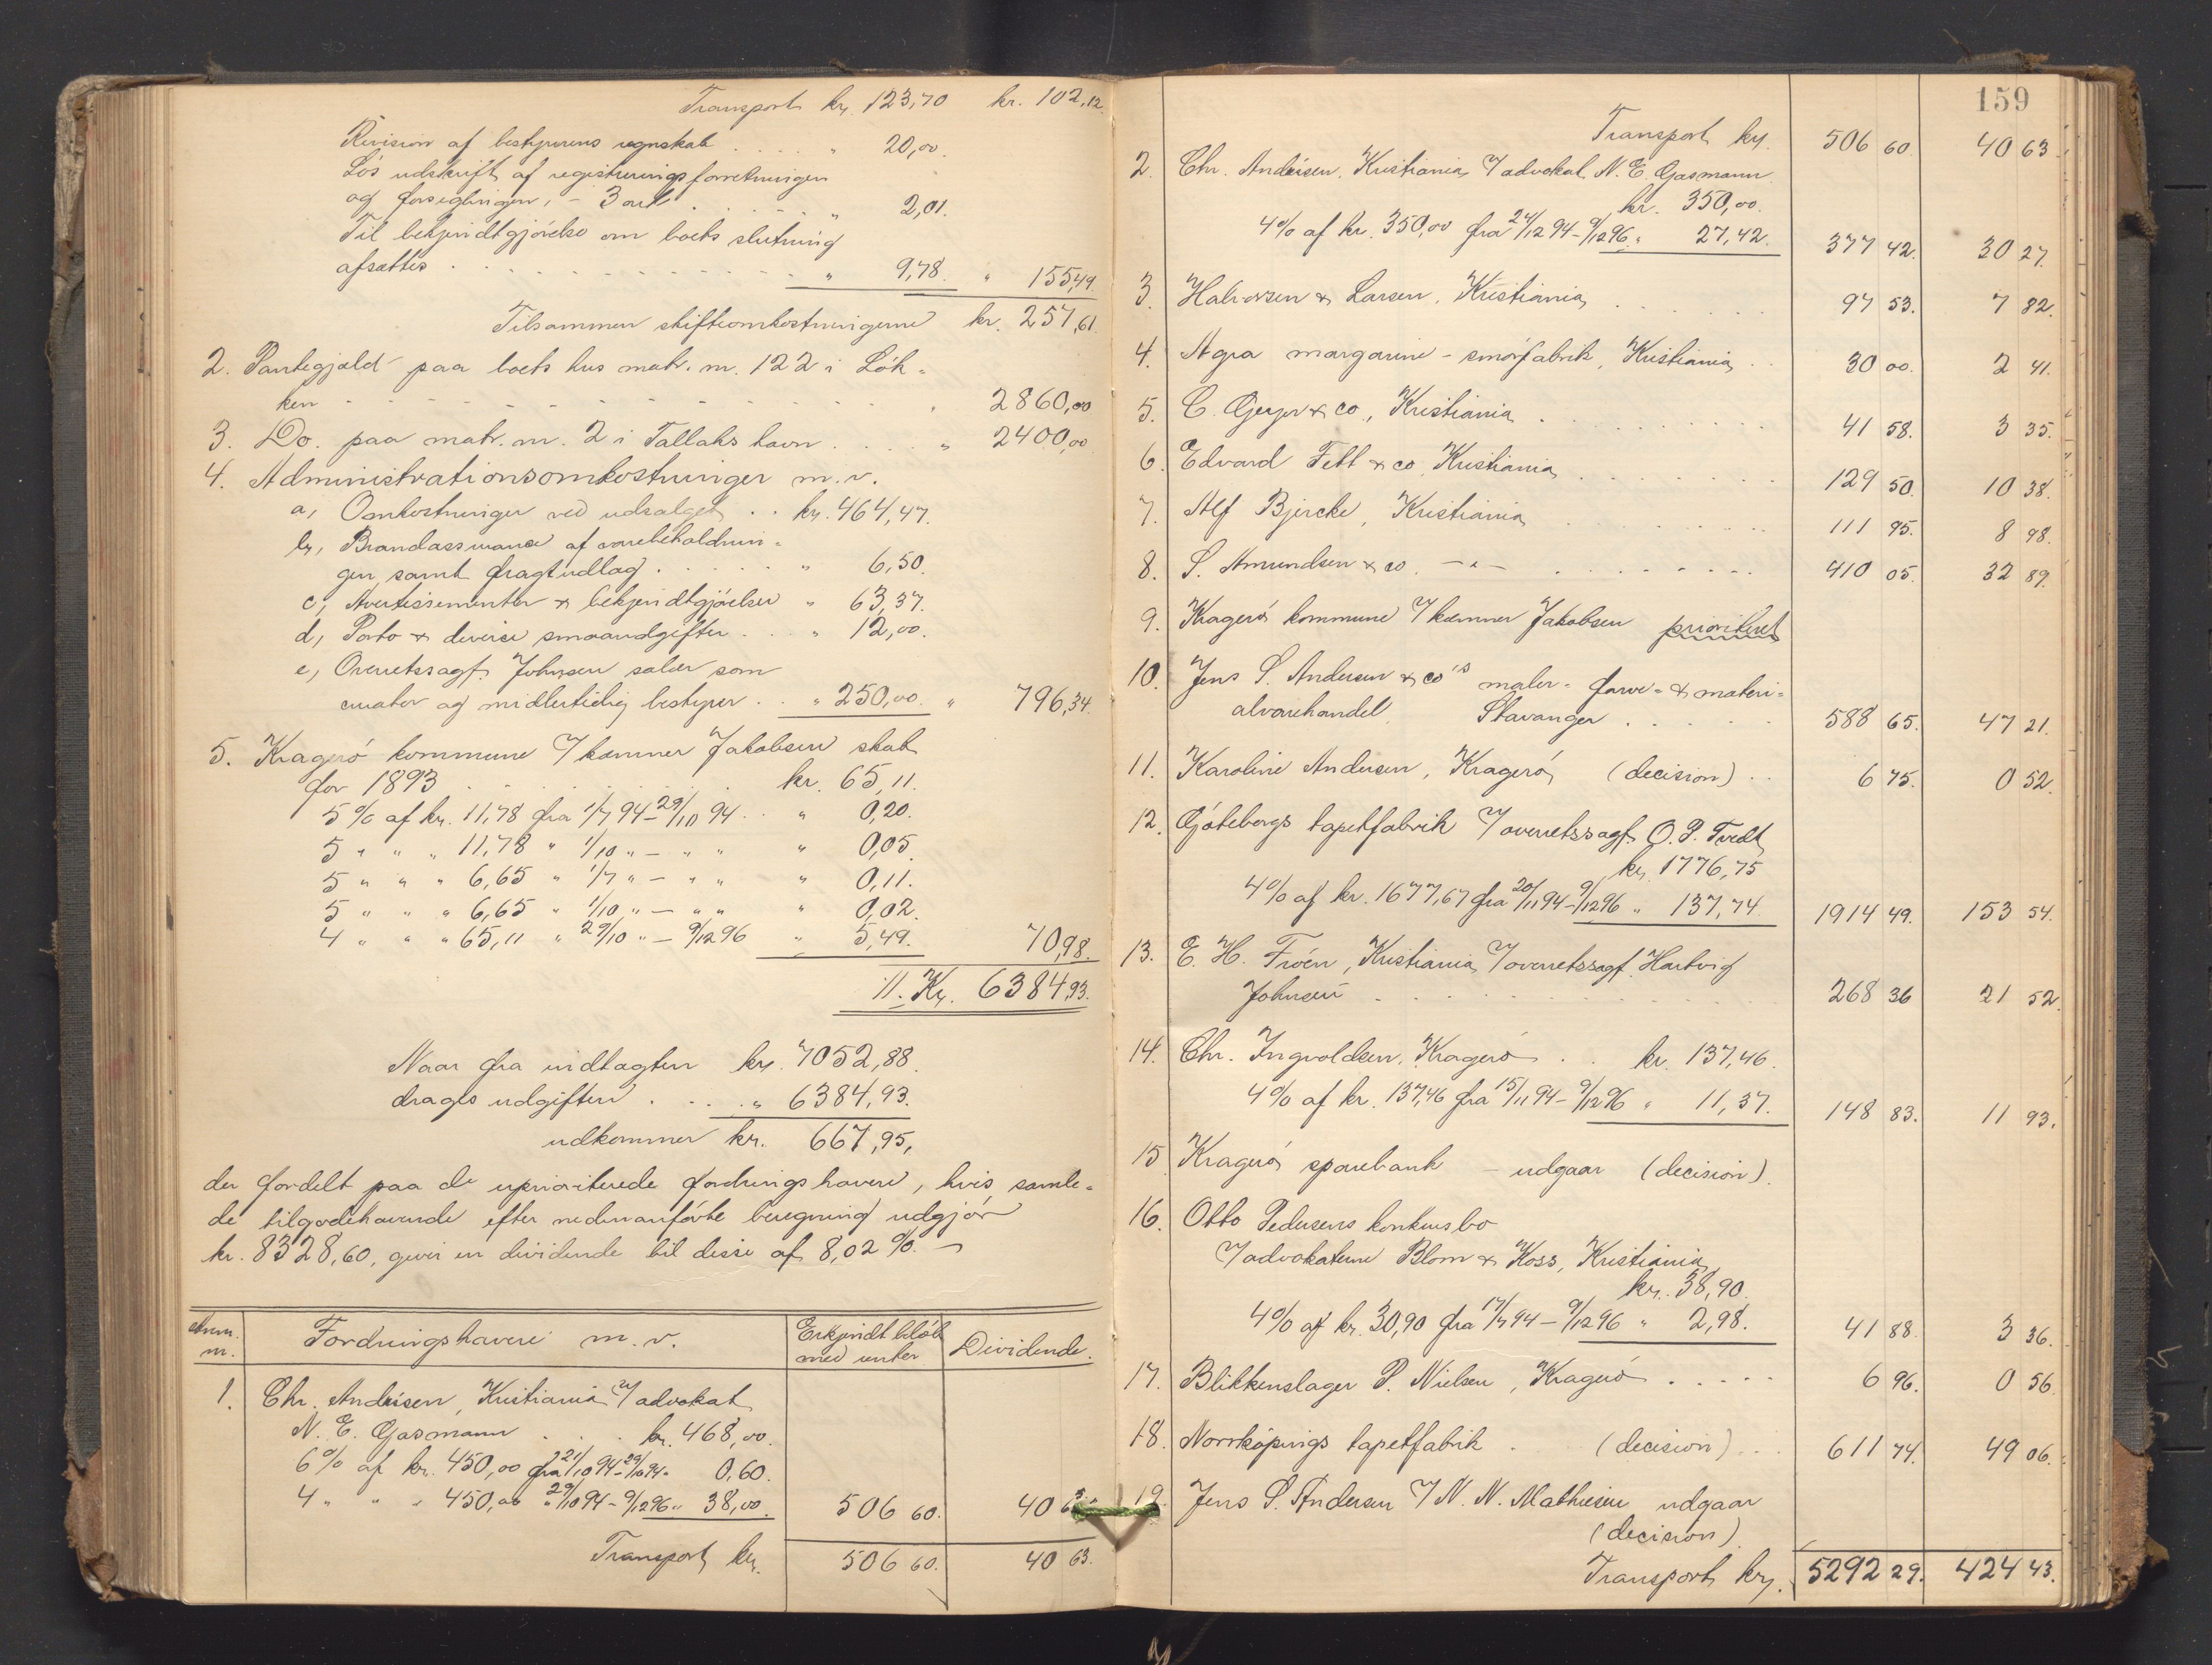 Transport kr. 123,70 kr. 102,12
Revision af bestyrerens regnskab . . . . " 20,00.
Løs udskrift af registreringsforretningen
og forseglingen, - 3 ark . . . . " 2,01.
Til bekjendtgjørelse om boets slutning
afsættes . . . . " 9,78. " 155,49.
Tilsammen skifteomkostningerne kr. 257,61.
2. Pantegjæld paa boets hus matr. nr. 122 i Løk-
ken - - - - - " 2860,00
3. Do. paa matr. nr. 2 i Tallakshavn . . . . " 2400,00
4. Administrationsomkostninger m. v.
a, Omkostninger ved udsalget . . kr. 464,47.
b, Brandassurance af varebeholdnin-
gen samt fragtudlæg . . . . " 6,50.
c, Avertissementer & bekjendtgjørelser " 63,37.
d, Porto & diverse smaaudgifter . . " 12,00.
e, Overretssagf. Johnsen salær som
curator og midlertidig bestyrer . . " 250,00. " 796,34.
5. Kragerø kommune v/ kæmner Jakobsen skat
for 1893 . . . . kr. 65,11.
5 % af kr. 11,78 fra 1/7 94 - 29/10 94 . . " 0,20.
5 " " " 11,78 " 1/10 " - " " " 0,05
5 " " " 6,65 " 1/7 " - " " " 0,11.
5 " " " 6,65 " 1/10 " - " " " 0,02.
4 " " " 65,11 " 29/10 " - 9/12 96 " 5,49. 70,98.
11. Kr. 6384,93.
Naar fra indtægten kr. 7052,88
drages udgiften . . . . " 6384,93.
udkommer kr. 667,95,
der fordelt paa de uprioriterede fordringshavere, hvis samle-
de tilgodehavende efter nedenanførte beregning udgjør
kr. 8328,60, giver en dividende til disse af 8,02 %. -
Anm. nr. Fordringshavere m. v. Erkjendt beløb med renter Dividende.
1. Chr. Andersen, Kristiania v/ advokat
N. E. Gasmann . . . kr. 468,00.
6 % af kr. 450,00 fra 21/10 94 - 29/10 94 " 0,60.
4 " " " 450,00 " 29/10 94 - 9/12 96 " 38,00. 506 60. 40 63.
Transport kr. 506 60. 40 63.
159
Transport kr. 506 60 40 63.
2. Chr. Andersen, Kristiania v/ advokat N. E. Gasmann
kr. 350,00.
4 % af kr. 350,00 fra 24/12 94 - 9/12 96 " 27,42. 377 42. 30 27.
3. Halvorsen & Larsen, Kristiania . . . . 97 53. 7 82.
4. Agra margarine - smørfabrik, Kristiania . . 30 00. 2 41.
5. C. Geyer & co., Kristiania . . . . 41 58. 3 35.
6. Edvard Fett & co Kristiania . . . . 129 50. 10 38.
7. Alf Bjercke, Kristiania . . . . 111 95. 8 98.
8. S. Amundsen & co. - " - . . . . 410 05. 32 89.
9. Kragerø kommune v/ kæmner Jakobsen prioriteret
10. Jens S. Andersen & co's maler- farve- & materi-
alvarehandel, Stavanger . . . . 588 65. 47 21.
11. Karoline Andersen, Kragerø (decision) . . 6 75. 0 52.
12. Gøteborgs tapetfabrik v/ overretssagf. O. P. Tvedt
kr. 1776,75
4 % af kr. 1677,67 fra 20/11 94 - 9/12 96 " 137,74. 1914 49. 153 54.
13. E. H. Frøen, Kristiania, v/ overretssagf. Hartvig
Johnsen . . . . 268 36 21 52
14. Chr. Ingvoldsen, Kragerø . . kr. 137,46.
4 % af kr. 137,46 fra 15/11 94 - 9/12 96 " 11,37. 148 83. 11 93.
15 Kragerø sparebank - udgaar (decision).
16. Otto Pedersens konkursbo
v/ advokaterne Blom & Koss, Kristiania
kr. 38,90.
4 % af kr. 30,90 fra 17/7 94 - 9/12 96 " 2,98. 41 88. 3 36.
17. Blikkenslager P. Nielsen, Kragerø . . . . 6 96. 0 56.
18. Norrkøpings tapetfabrik . (decision) . . . 611 74. 49 06.
19. Jens S. Andersen v/ N. N. Mathiesen udgaar
(decision).
Transport kr. 5292 29. 424 43.